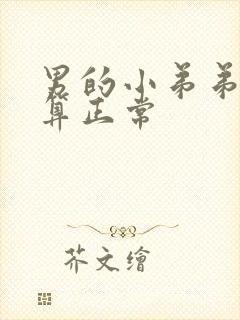 男的小弟弟
算正常
芥文绘